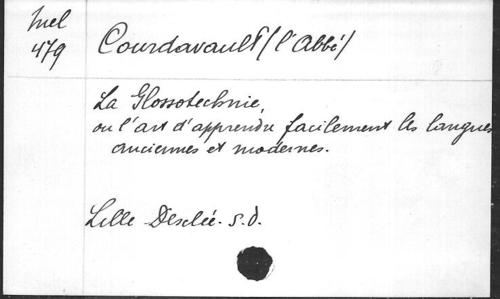 Inel
479
Courdavault (l'Abbé)
La Glossotechnie,
ou l'art d'apprendre facilement les langues
anciennes et modernes.
Lille Desclée. s.d.